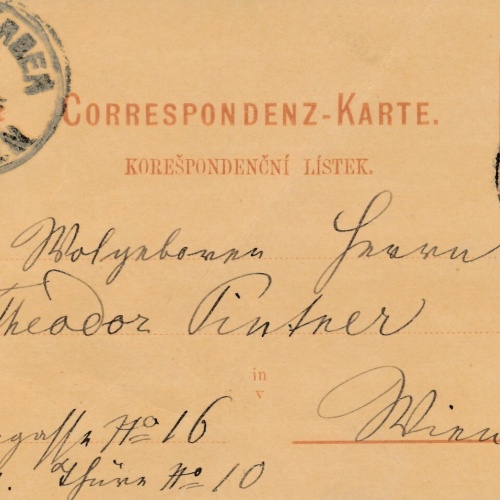 CORRESPONDENZ-KARTE.
KOREŠPONDENČNÍ LÍSTEK.
Wolgeboren Herrn
Theodor Pintner
in
v
Wien
gasse No 16
Thüre No 10